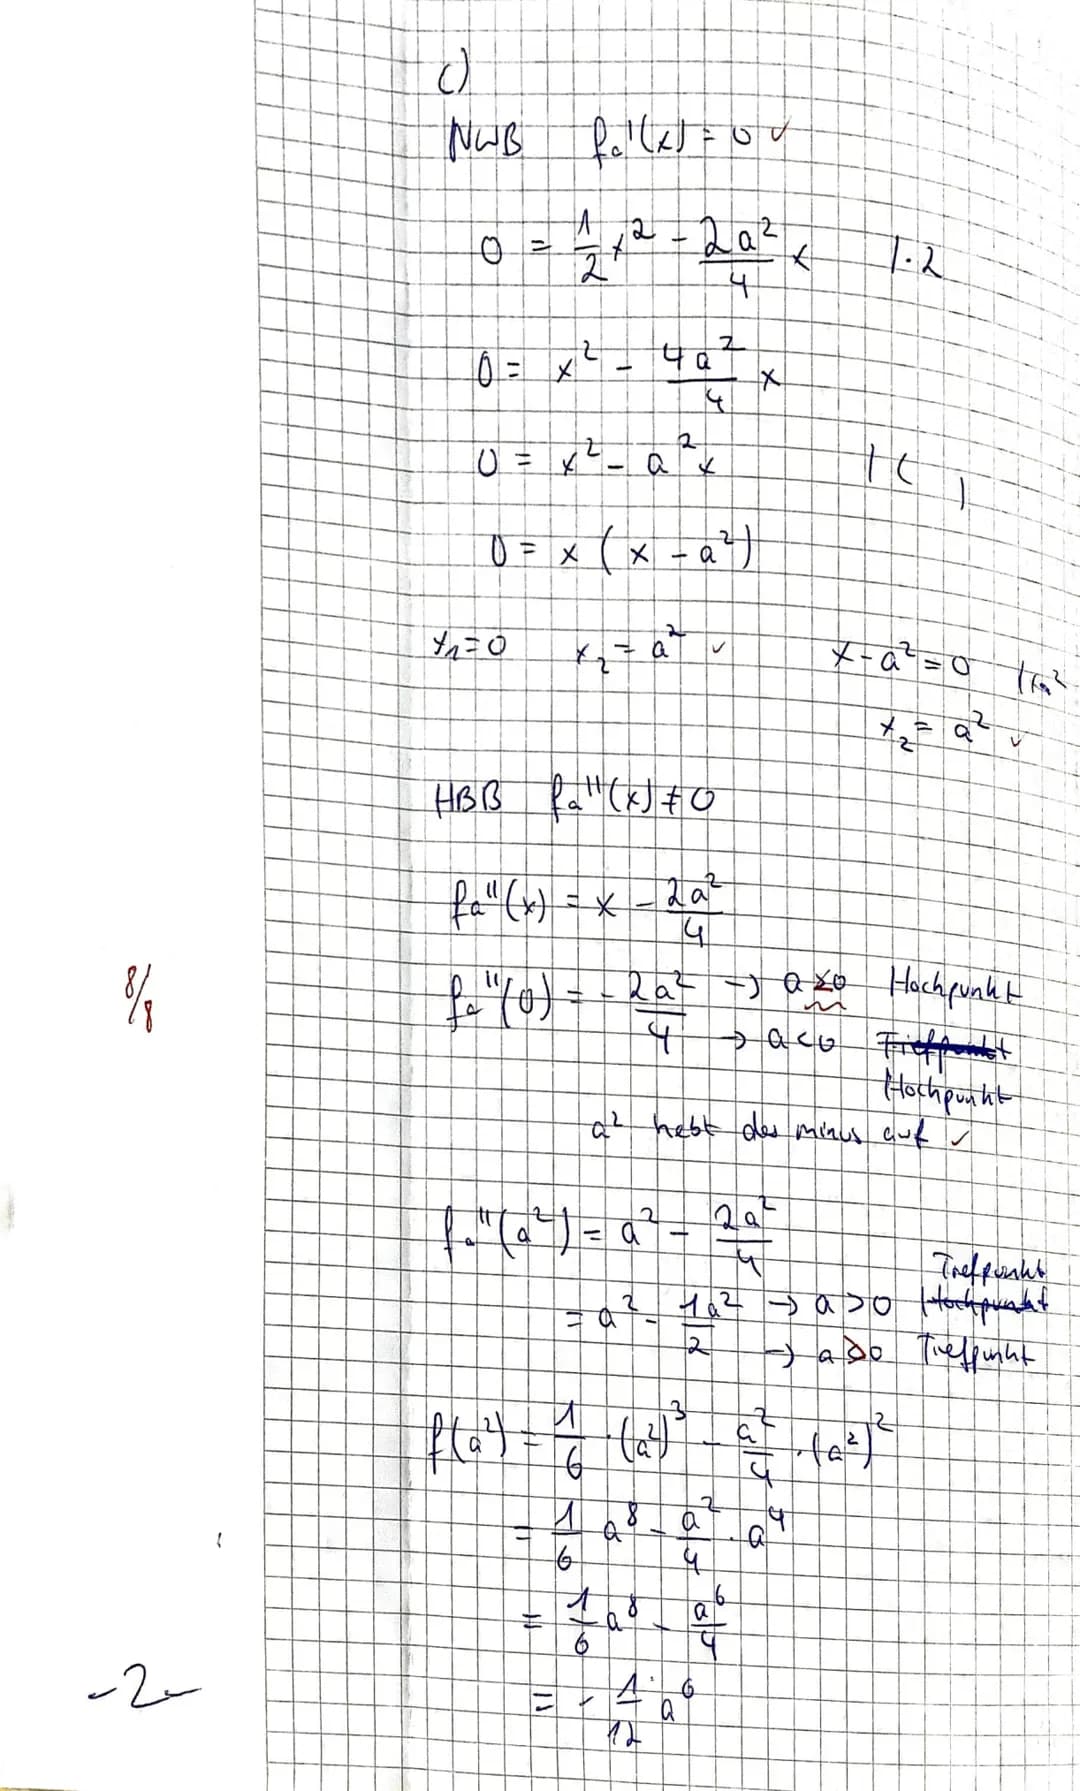 c)
NWB fa'(x) = 0 ✓
0 = 1/2 x² - 2a²/4 x | · 2
0 = x² - 4a²/4 x
0 = x² - a²x | ( )
0 = x (x - a²)
x₁ = 0 x₂ = a² ✓ x - a² = 0 | +a²
x₂ = a² ✓
HBB fa''(x) ≠ 0
fa''(x) = x - 2a²/4
8/8
fa''(0) = - 2a²/4 → a > 0 Hochpunkt
→ a < 0 Tiefpunkt
Hochpunkt
a² hebt das minus auf ✓
fa''(a²) = a² - 2a²/4
Tiefpunkt
= a² - 1a²/2 → a > 0 Hochpunkt
→ a > 0 Tiefpunkt
f(a²) = 1/6 · (a²)³ - a²/4 · (a²)²
= 1/6 a⁸ - a²/4 · a⁴
= 1/6 a⁸ - a⁶/4
-2-
= - 1/12 a⁶